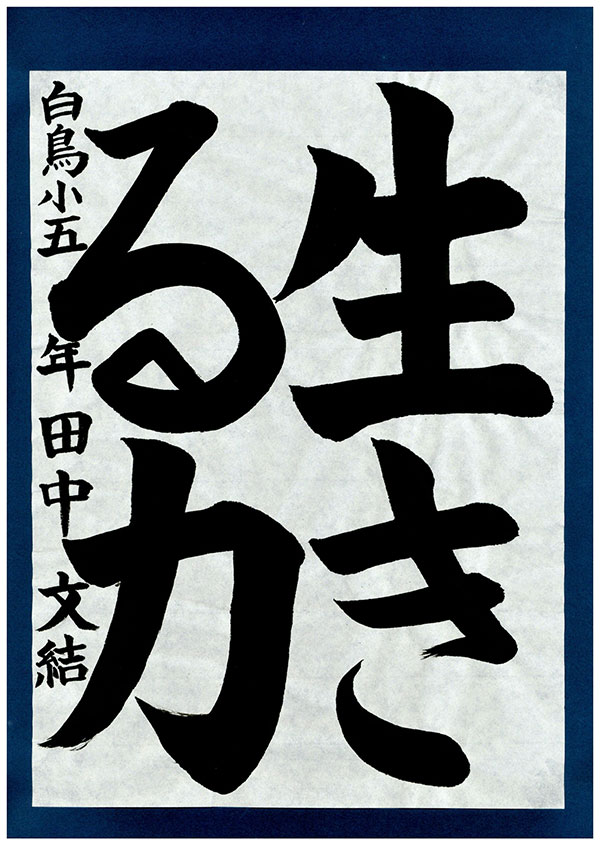 生き
る力
白鳥小五年田中文結